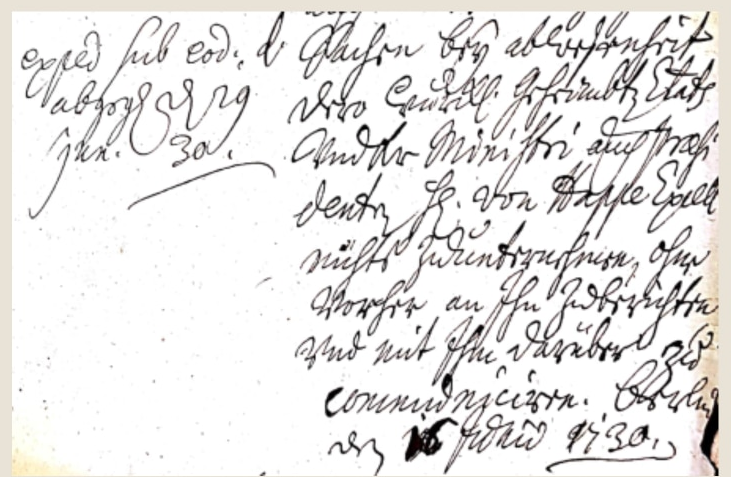 exped sub eod. d
abgegb d 29
Jun. 30.
Sachen bey abwesenheit
dero Geheimbt Etats
Und Ministri auch Præsi
denten H. von Happe Excell
nichts zu unternehmen, ohne
Vorher an Ihn zu berichten
und mit Ihm darüber zu
communiciren. Berlin
den 16 Junii 1730.